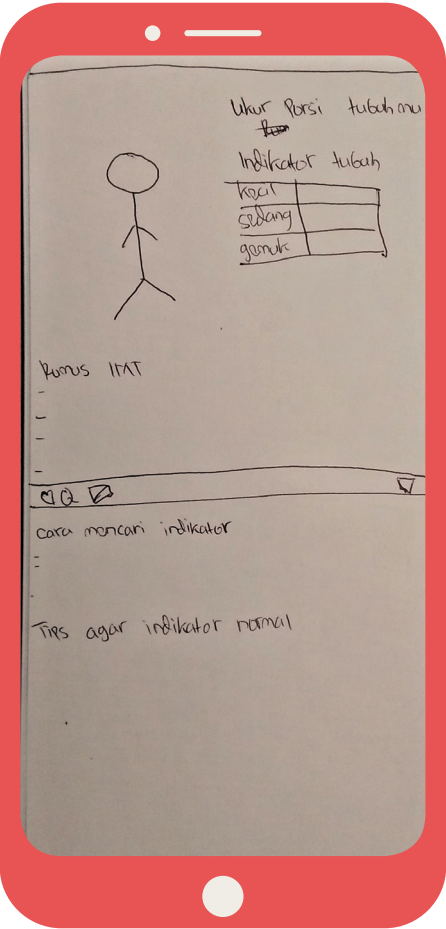 Ukur Porsi tubuhmu
Indikator tubuh
kecil
sedang
gemuk
Rumus IMT
cara mencari indikator
Tips agar indikator normal